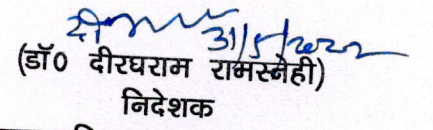 31/5/2022
(डॉ० दीरघराम रामस्नेही)
निदेशक